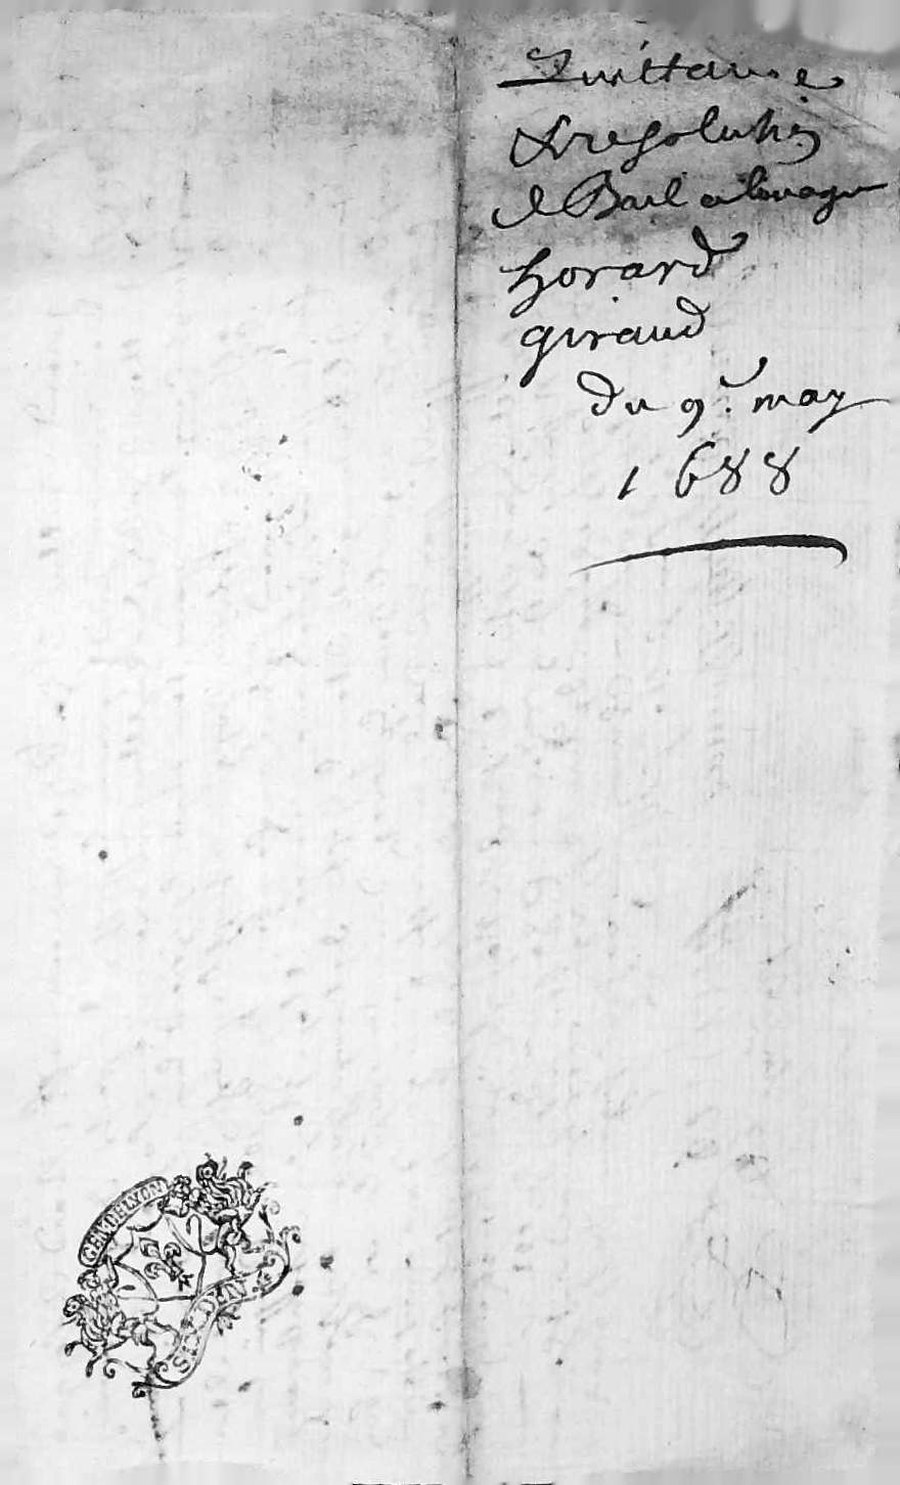 Quittance
& resolution
de Bail a louage
horard
giraud
du 9e. may
1688
GEN. DE LYON
SIX DEN